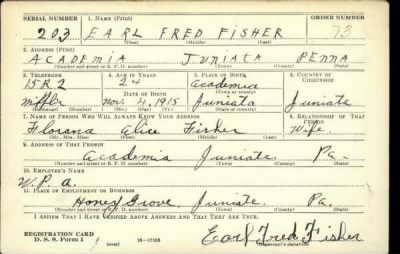 SERIAL NUMBER 1. NAME (Print) ORDER NUMBER
203 EARL FRED FISHER 73
(First) (Middle) (Last)
2. ADDRESS (Print)
ACADEMIA JUNIATA PENNA
(Number and street or R. F. D. number) (Town) (County) (State)
3. TELEPHONE 4. AGE IN YEARS 5. PLACE OF BIRTH 6. COUNTRY OF CITIZENSHIP
15R2 24 Academia
DATE OF BIRTH (Town or county)
Mifflin Nov. 4, 1915 Juniata Juniata
(Exchange) (Number) (Mo.) (Day) (Yr.) (State or country)
7. NAME OF PERSON WHO WILL ALWAYS KNOW YOUR ADDRESS 8. RELATIONSHIP OF THAT PERSON
Florana Alice Fisher Wife.
(Mr., Mrs., Miss) (First) (Middle) (Last)
9. ADDRESS OF THAT PERSON
Academia Juniata Pa.
(Number and street or R. F. D. number) (Town) (County) (State)
10. EMPLOYER'S NAME
W. P. A.
11. PLACE OF EMPLOYMENT OR BUSINESS
Honey Grove Juniata. Pa.
(Number and street or R. F. D. number) (Town) (County) (State)
I AFFIRM THAT I HAVE VERIFIED ABOVE ANSWERS AND THAT THEY ARE TRUE.
REGISTRATION CARD
D. S. S. Form 1 (over) 16—17105 Earl Fred Fisher
(Registrant's signature)